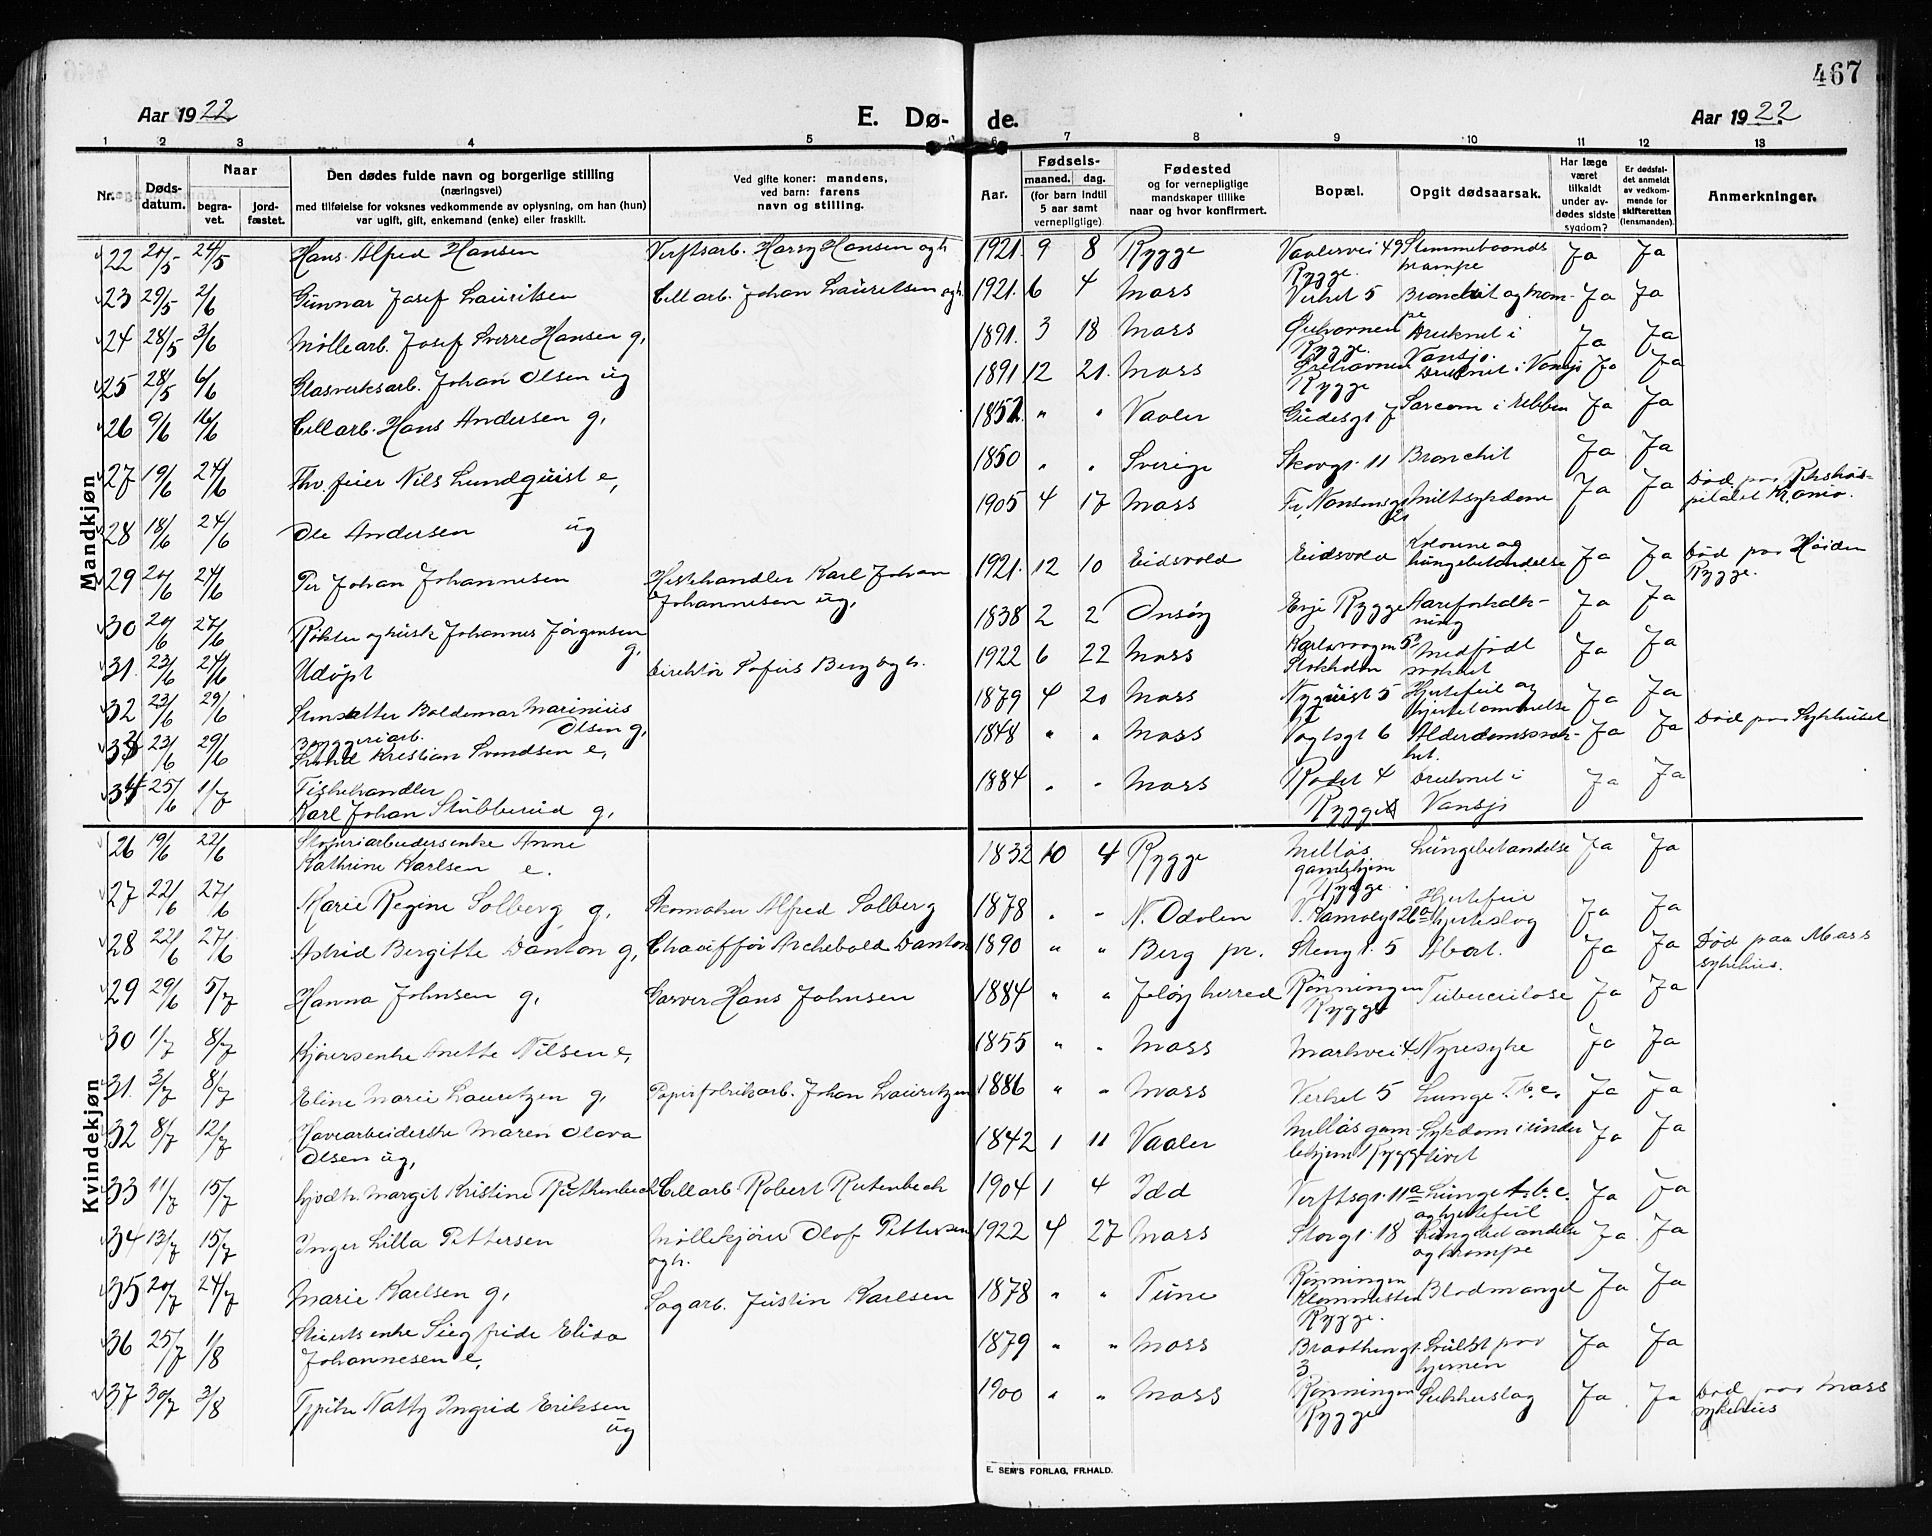 467
Aar 1922
E. Dø-
de.
Aar 1922.
1 2 3 4 5 6 7 8 9 10 11 12 13
Nr.
Døds-
datum.
Naar
begra-
vet.
jord-
fæstet.
Den dødes fulde navn og borgerlige stilling
(næringsvei)
med tilføielse for voksnes vedkommende av oplysning, om han (hun)
var ugift, gift, enkemand (enke) eller fraskilt.
Ved gifte koner: mandens,
ved barn: farens
navn og stilling.
Aar.
Fødsels-
maaned. dag.
(for barn indtil
5 aar samt
vernepligtige)
Fødested
og for vernepligtige
mandskaper tillike
naar og hvor konfirmert.
Bopæl.
Opgit dødsaarsak.
Har læge
været
tilkaldt
under av-
dødes sidste
sygdom?
Er dødsfal-
det anmeldt
av vedkom-
mende for
skifteretten
(lensmanden).
Anmerkninger.
Mandkjøn
22 20/5 24/5 Hans Alfred Hansen Verftsarb. Harry Hansen ogh 1921. 9 8 Rygge Vaalervei 49 Stemmebaands Ja Ja
Rygge. krampe
23 29/5 2/6 Gunnar Josef Lauritsen Cellarb. Johan Lauritsen ogh. 1921. 6 4 Moss Verket 5 Bronchit og kram- Ja Ja
pe
24 28/5 3/6 Møllearb. Josef Sverre Hansen g, 1891. 3 18 Moss Ørehavnen Druknet i Ja Ja
Rygge. Vansjø.
25 28/5 6/6 Glasverksarb. Johan Olsen ug 1891 12 21. Moss Ørehavnen Druknet i Vansjø Ja Ja
Rygge
26 9/6 16/6 Cellarb. Hans Andersen g, 1852. " " Vaaler Gudesgt 7 Sarcom i Ribben Ja Ja
27 19/6 24/6 Fhv. feier Nils Lundquist e, 1850 " " Sverige Skovgt. 11 Bronchit Ja Ja
28 18/6 24/6 Ole Andersen ug 1905 4 17 Moss Fr. Nansensgt Miltsykdom Ja Ja Død paa Rikshos-
pitalet Kr.ania.
29 20/6 24/6 Per Johan Johannesen Hestehandler Karl Johan 1921. 12 10 Eidsvold Eidsvold Kolerine og Ja Ja Død paa Høiden
Johannesen ug, lungebetændelse Rygge.
30 20/6 27/6 Røkter og husk Johannes Jørgensen 1838 2 2 Onsøy Evje Rygge Aareforkalk- Ja Ja
g, ning
31. 23/6 24/6 Udøpt Direktør Sofus Berg ogh. 1922 6 22 Moss Karlsvognen 5? Medfødt Ja Ja
Stokholm svakhet
32 23/6 29/6 Stensætter Valdemar Marinius 1879 4 20 Moss Nyquist 5 Hjertefeil og Ja Ja
Olsen g, hjertelammelse
33 23/6 29/6 Bryggeriarb. 1848 " " Moss Vogtsgt 6 Alderdomssvak- Ja Ja Død paa Sykehuset
Kristian Svendsen e, het.
34 25/6 1/7 Fiskehandler 1884 " " Moss Rødet 4 Druknet i Ja Ja
Karl Johan Stubberud g, Rygge Vansjø
Kvindekjøn
26 19/6 22/6 Støperiarbeidersenke Anne 1832 10 4 Rygge Melløs Lungebetændelse Ja Ja
Kathrine Karlsen e. gamlehjem
Rygge.
27 22/6 27/6 Marie Regine Solberg g, Skomaker Alfred Solberg 1878 " " N. Odalen V. Kanalgt 26a Hjertefeil Ja Ja
hjerteslag
28 22/6 27/6 Astrid Bergitte Danton g, Chauffør Archebald Danton 1890 " " Berg pr. Stengt. 5 Abort. Ja Ja Død paa Moss
sykehus.
29 29/6 5/7 Hanna Johnsen g, Garver Hans Johnsen 1884 " " Jeløy herred Rønningen Tuberculose Ja Ja
Rygge
30 1/7 8/7 Kjørersenke Anette Nilsen e, 1855 " " Moss Markvei 4. Nyresyke Ja Ja
31. 3/7 8/7 Eline Marie Lauritzen g, Papirfabrikarb. Johan Lauritzen 1886 " " Moss Verket 5 Lunge. Tb.c. Ja Ja
32 8/7 12/7 Havearbeiderske Maren Olava 1842 1 11 Vaaler Melløs gam- Sykdom i under Ja Ja
Olsen ug, lehjem Rygge livet
33 11/7 15/7 Syvdtr. Margit Kristine Ruthenbech Cellarb. Robert Rutenbech 1904 1 4 Idd Verftsgt. 11a Lunge t.b.c. Ja Ja
og hjertefeil
34 13/7 15/7 Inger Lilla Pettersen Møllekjører Olof Pettersen 1922 4 27 Moss Storgt. 18 Lungebetændelse Ja. Ja
ogh. og krampe
35 20/7 24/7 Marie Karlsen g, Sagarb. Justin Karlsen 1878 " " Tune Rønningen Blodmangel Ja Ja
Klommesten
Rygge.
36 25/7 1/8 Skuertsenke Siegfride Elida 1879 " " Moss Braathengt. Svulst paa Ja Ja
Johannesen e, 3 hjernen
37 30/7 3/8 Typitr. Natty Ingrid Eriksen 1900 " " Moss Rønningen Sukkerslag Ja Ja Død paa Moss
ug Rygge sykehus
E. SEM'S FORLAG, FR.HALD.